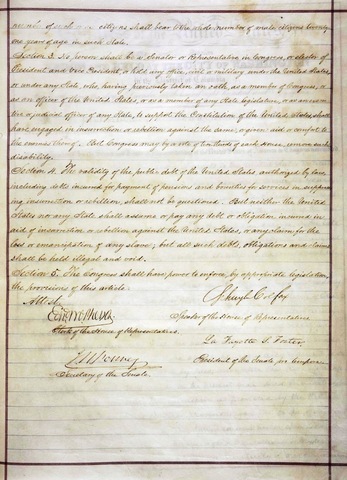 number of such male citizens shall bear to the whole number of male citizens twenty
one years of age in such State.
Section 3. No person shall be a Senator or Representative in Congress, or elector of
President and Vice President, or hold any office, civil or military, under the United States,
or under any State, who, having previously taken an oath, as a member of Congress, or
as an officer of the United States, or as a member of any State legislature, or as an execu
tive or judicial officer of any State, to support the Constitution of the United States, shall
have engaged in insurrection or rebellion against the same, or given aid or comfort to
the enemies thereof. But Congress may by a vote of two thirds of each House, remove such
disability.
Section 4. The validity of the public debt of the United States, authorized by law,
including debts incurred for payment of pensions and bounties for services in suppress
ing insurrection or rebellion, shall not be questioned. But neither the United
States nor any State shall assume or pay any debt or obligation incurred in
aid of insurrection or rebellion against the United States, or any claim for the
loss or emancipation of any slave; but all such debts, obligations and claims
shall be held illegal and void.
Section 5. The Congress shall have power to enforce, by appropriate legislation,
the provisions of this article.
Attest.
Schuyler Colfax
Speaker of the House of Representatives.
Edwd McPherson
Clerk of the House of Representatives.
La Fayette S. Foster
President of the Senate pro tempore.
J. W. Forney
Secretary of the Senate.